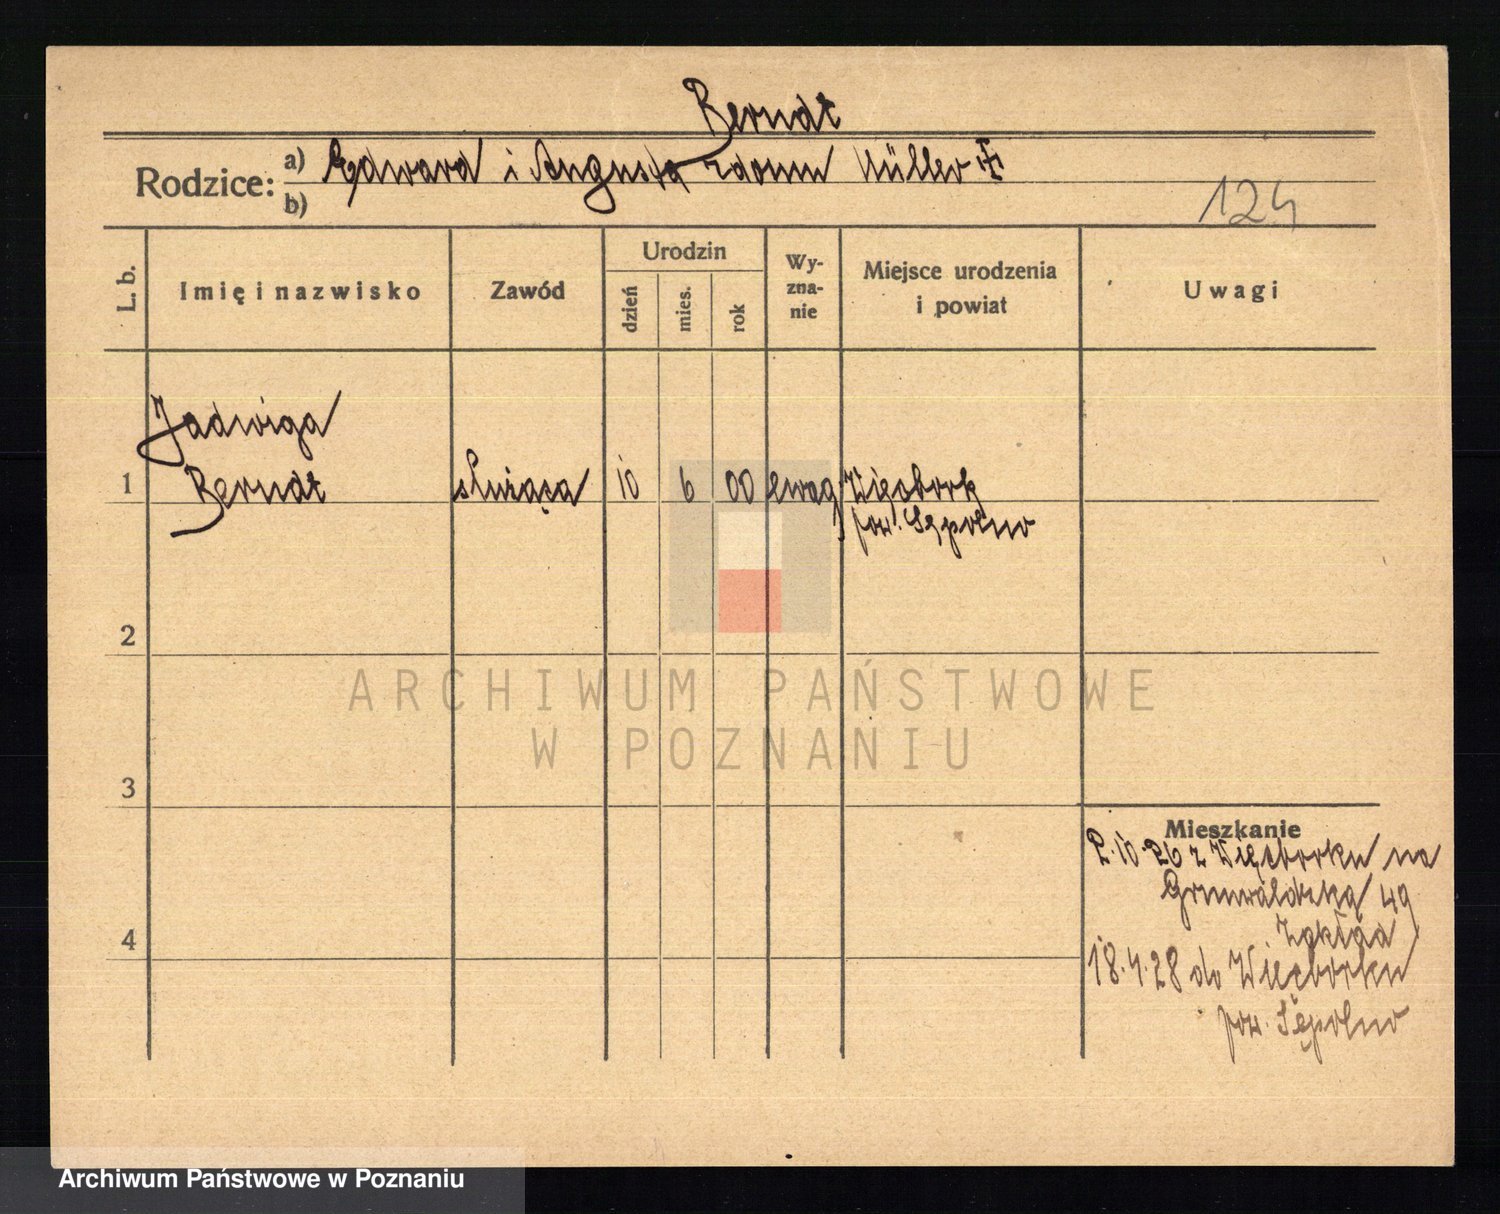 Berndt
Rodzice: a) Edward i Augusta zdomu Müller
b)
124
L. b. Imię i nazwisko Zawód Urodzin dzień mies. rok Wy-zna-nie Miejsce urodzenia i powiat Uwagi
Jadwiga
1 Berndt służąca 10 6 00 ewag Więcbork
pow. Sępolno
2
ARCHIWUM PAŃSTWOWE
W POZNANIU
3
Mieszkanie
2.10.26 z Więcborku na
Grunwaldzką 49
4
18.4.28 do Więcborku
pow. Sępolno
Archiwum Państwowe w Poznaniu